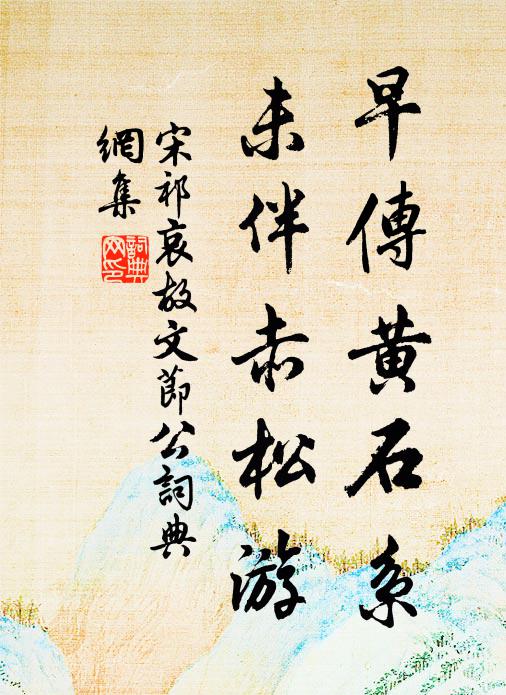 早傳黄石系
未伴赤松游
宋祁哀故文節公詞典
網集
詞典
网印